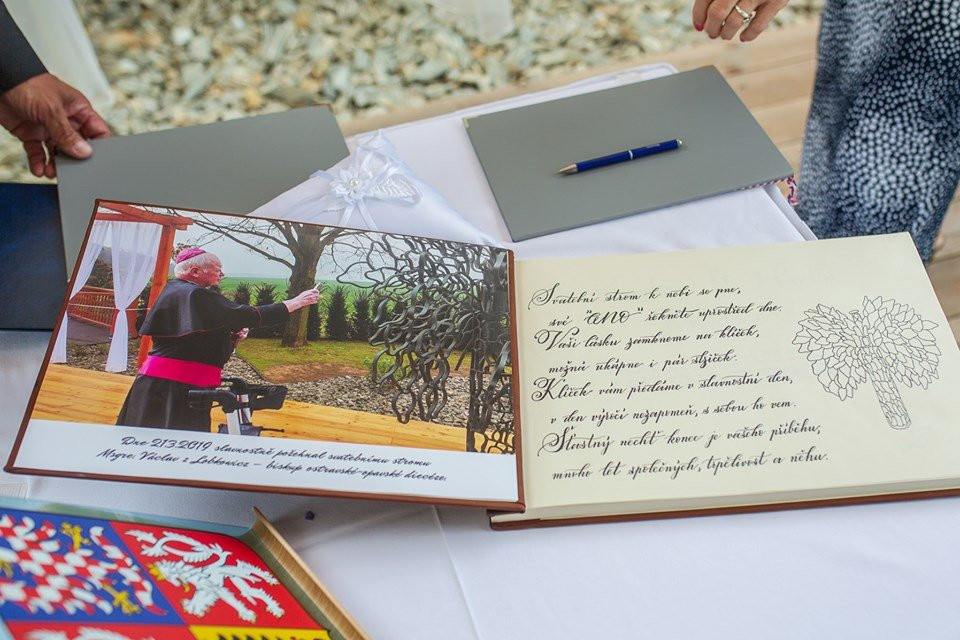 Dne 21.3.2019 slavnostně požehnal svatebnímu stromu
Msgre. Václav z Lobkowicz – biskup ostravsko-opavské diecéze.
Svatební strom k nebi se pne,
své "ANO" řekněte uprostřed dne.
Vaši lásku zamkneme na klíček,
možná ukápne i pár slziček.
Klíček vám předáme v slavnostní den,
v den výročí nezapomeň, s sebou ho vem.
Šťastný nechť konec je vašeho příběhu,
mnoho let společných, trpělivost a něhu.